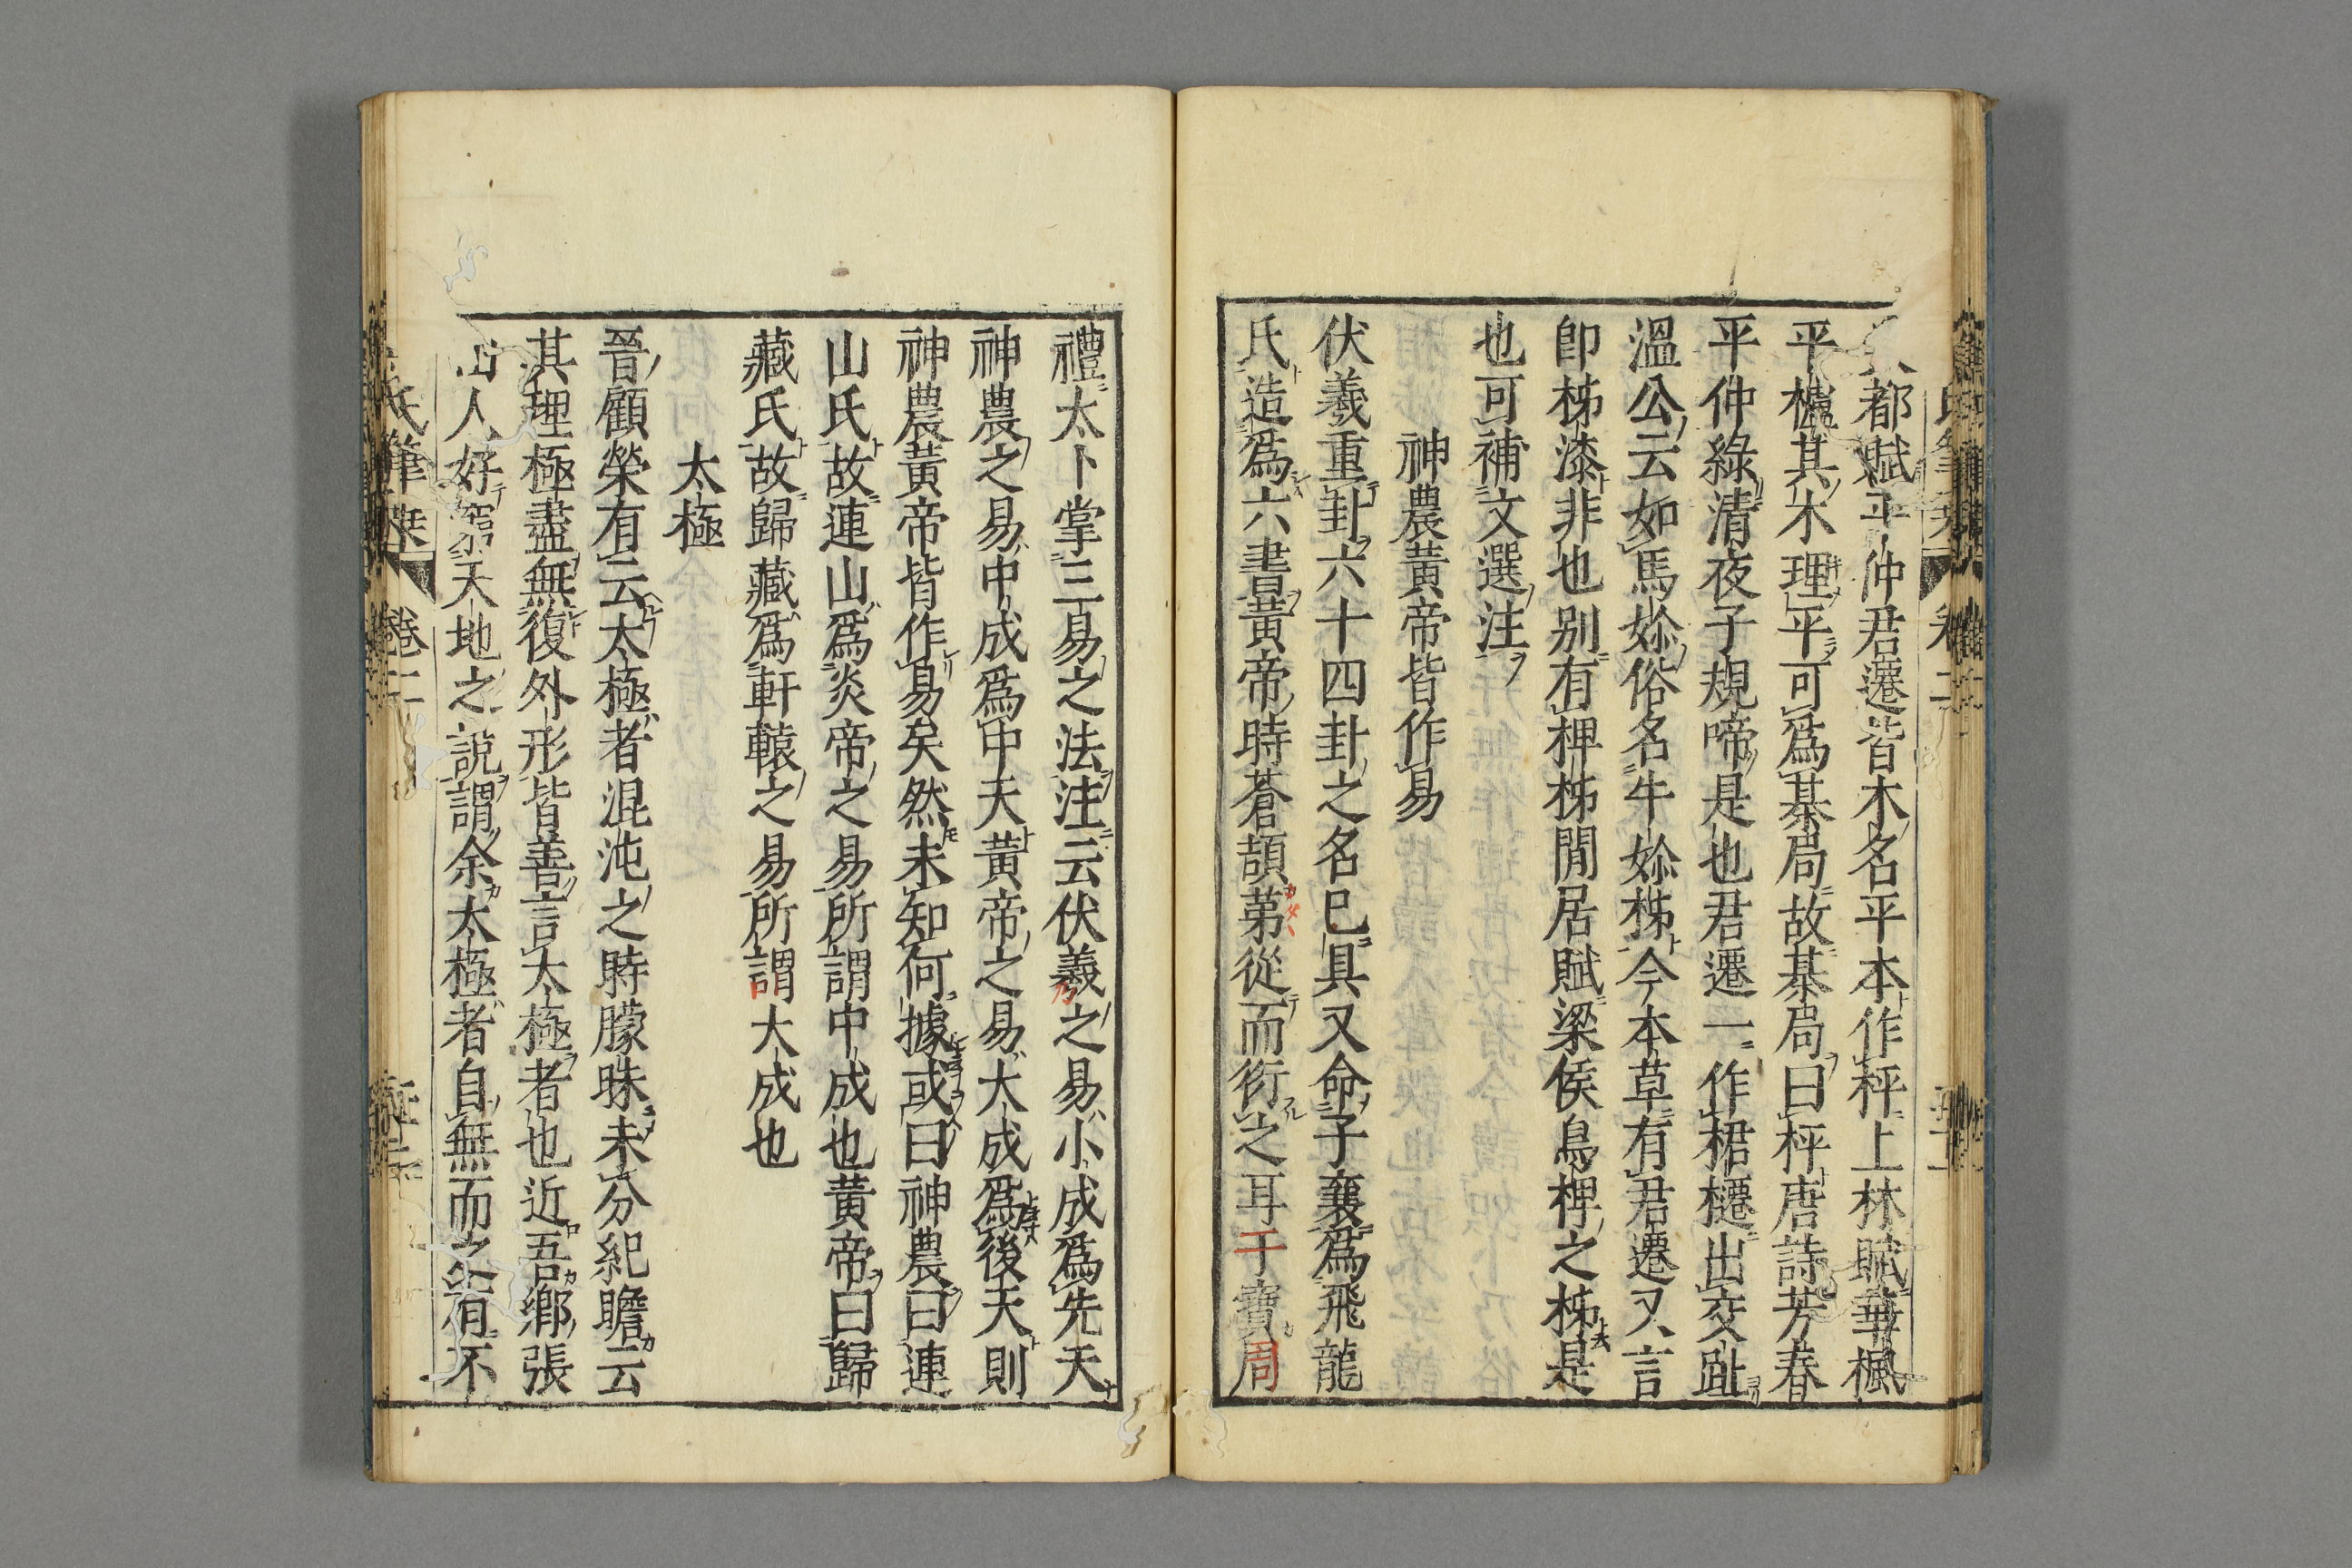 都賦平仲君遷皆木名平本作枰上林賦華楓
平櫨其木理平可爲棊局故棊局曰枰唐詩芳春
平仲綠清夜子規啼是也君遷一作桾櫏出交趾
溫公云如馬妳俗名牛妳柹今本草有君遷又言
卽柹漆非也别有椑柹閒居賦梁侯烏椑之柹是
也可補文選注
神農黃帝皆作易
伏羲重卦六十四卦之名已具又命子襄爲飛龍
氏造爲六書黃帝時蒼頡第從而衍之耳干寶周
禮太卜掌三易之法注云伏羲之易小成爲先天
神農之易中成爲中天黃帝之易大成爲後天則
神農黃帝皆作易矣然未知何據或曰神農曰連
山氏故連山爲炎帝之易所謂中成也黃帝曰歸
藏氏故歸藏爲軒轅之易所謂大成也
太極
晉顧榮有云太極者混沌之時朦昧未分紀瞻云
其理極盡無復外形皆善言太極者也近吾鄉張
山人好窮天地之說謂余太極者自無而之有不
氏筆乗 卷二